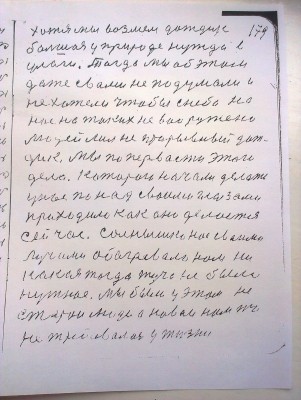 179
хотя мы возмем дождик
большая у природе нужда в
влаги. Тогда мы об этом
даже с вами не подумали и
не хотели чтобы с неба на
нас на таких не вооружено
людей лил не прарывный дож-
дик. Мы по первасти этого
дела. Которого начали делать
у нас по над своими глазами
праходило как оно делается
сейчас. Солнышко нас своими
лучами обогревало нам ни
какая тогда туча не была
нужная. Мы были у этом не
старои люди а новаи нам ни
не требовалося у жизни